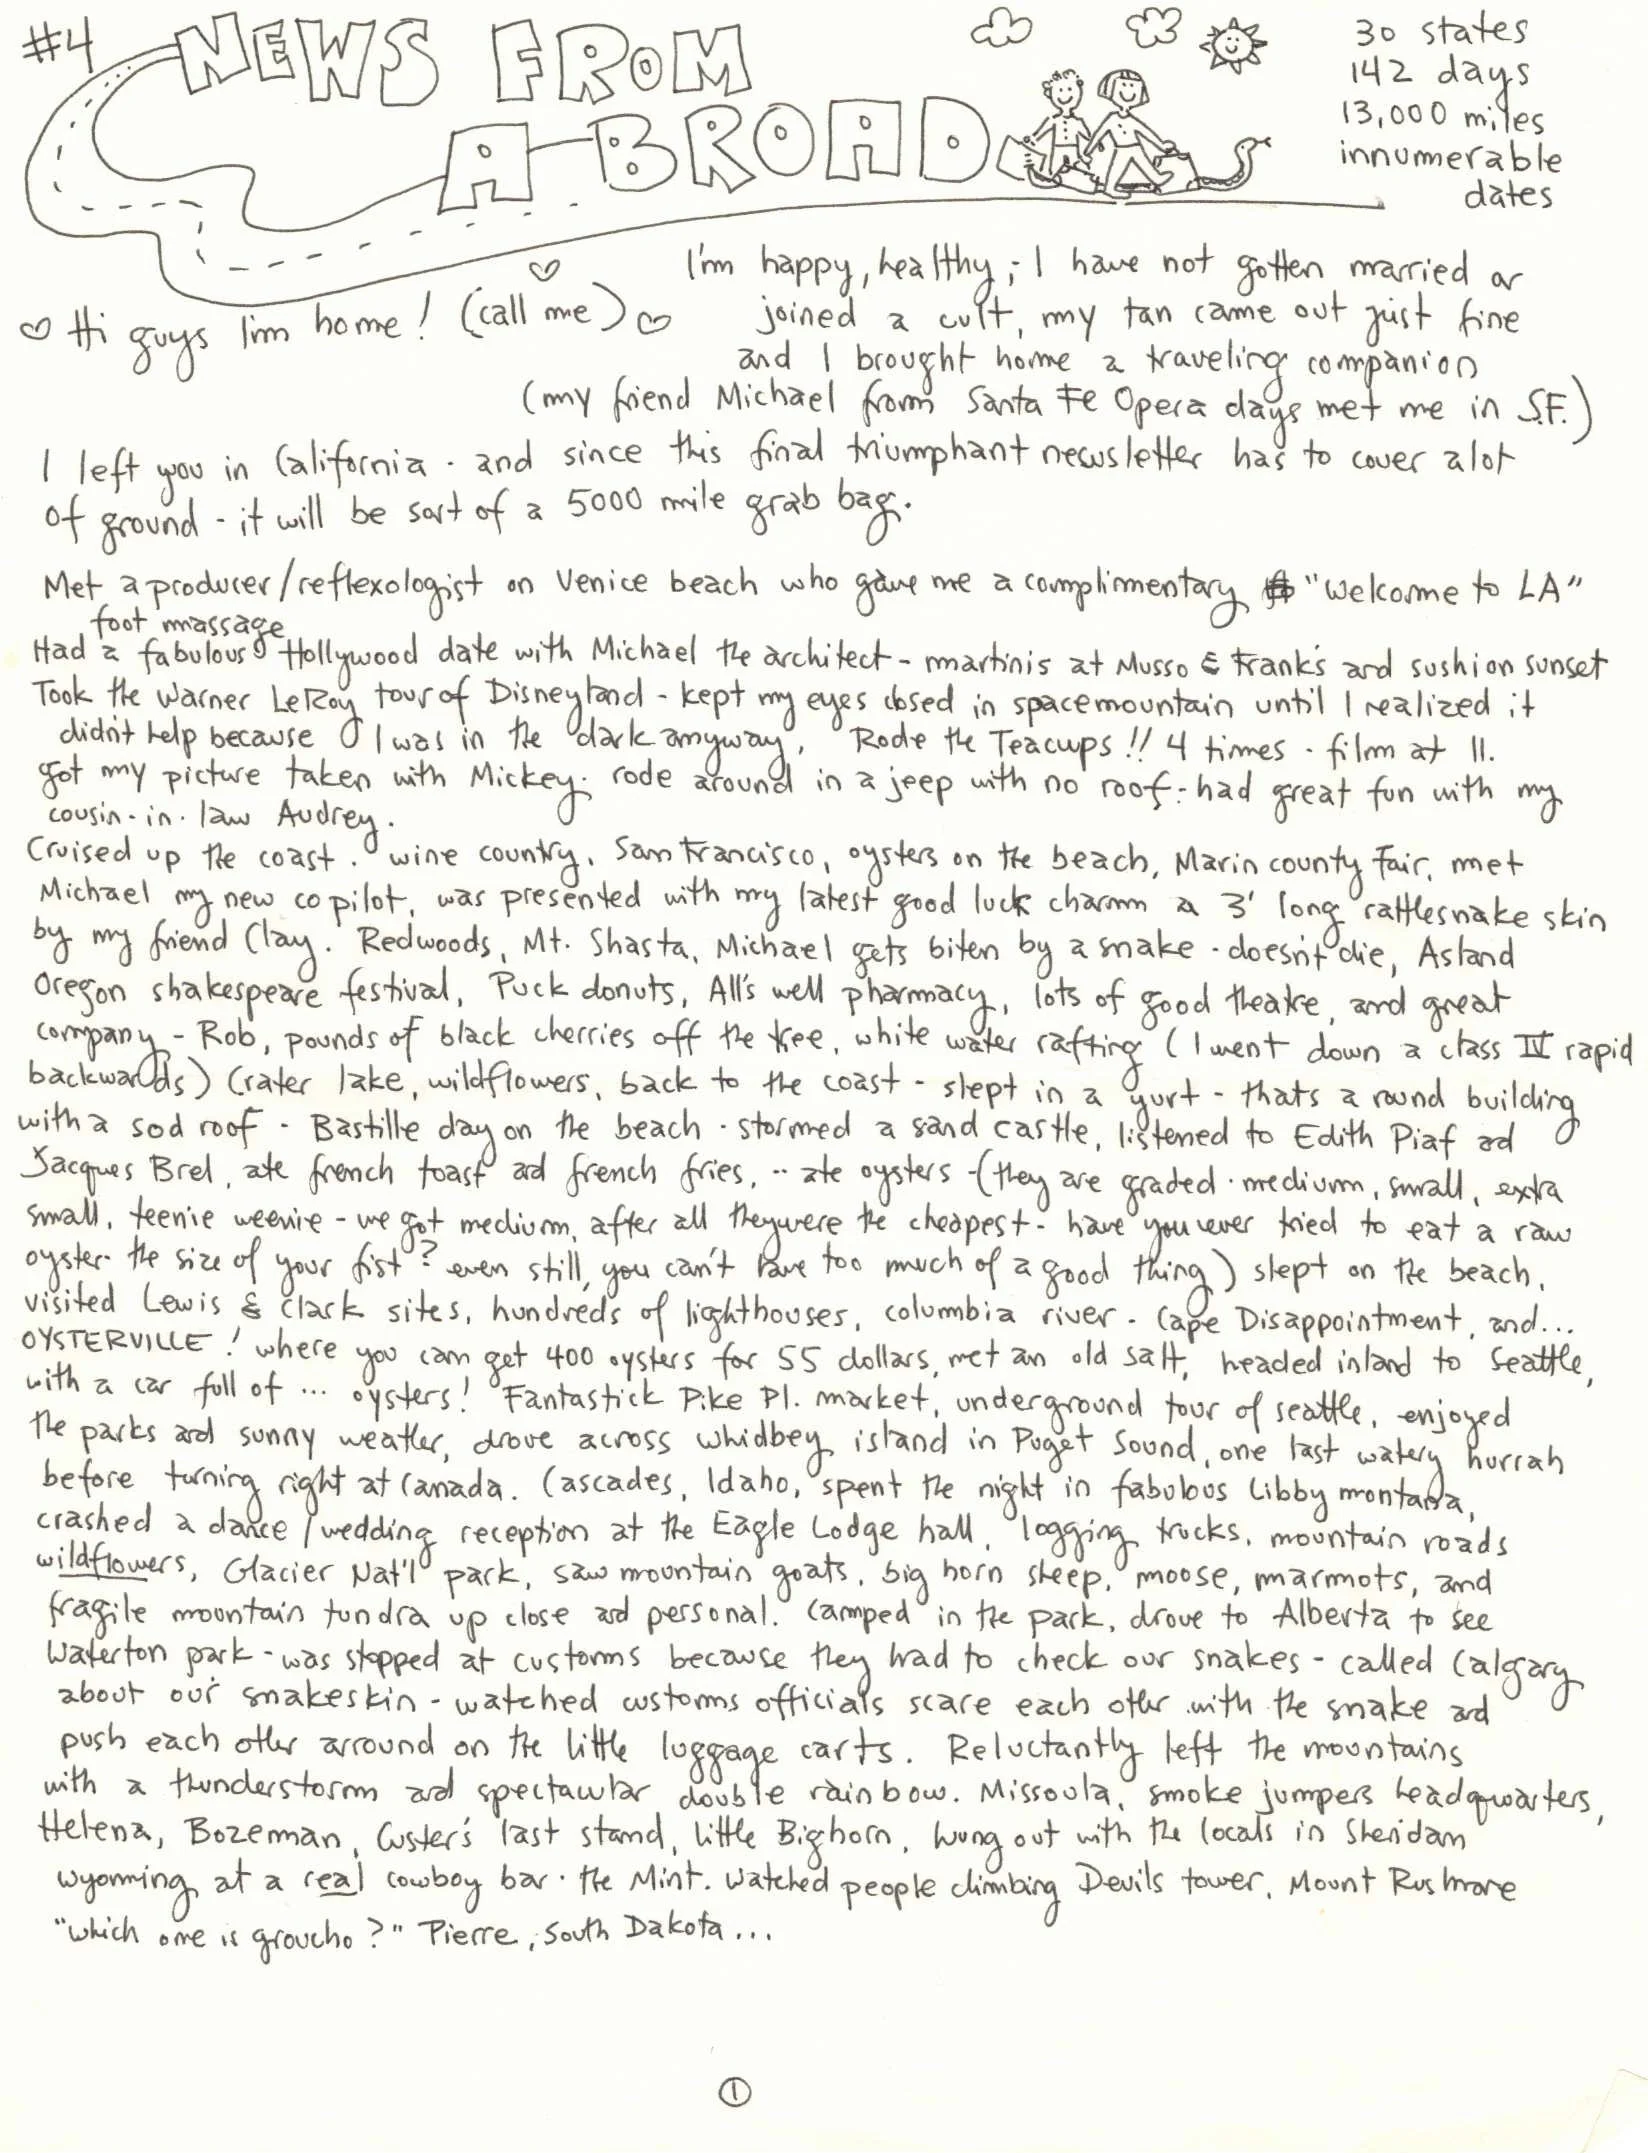 #4 NEWS FROM
A-BROAD
30 states
142 days
13,000 miles
innumerable
dates
I'm happy, healthy, - I have not gotten married or
♡ Hi guys I'm home! (call me) ♡ joined a cult, my tan came out just fine
and I brought home a traveling companion
(my friend Michael from Santa Fe Opera days met me in S.F.)
I left you in California - and since this final triumphant newsletter has to cover alot
of ground - it will be sort of a 5000 mile grab bag.
Met a producer/reflexologist on Venice beach who gave me a complimentary "Welcome to LA"
foot massage
Had a fabulous Hollywood date with Michael the architect - martinis at Musso & Frank's and sushi on sunset
Took the Warner LeRoy tour of Disneyland - kept my eyes closed in spacemountain until I realized it
didn't help because I was in the dark anyway, Rode the Teacups!! 4 times - film at 11.
got my picture taken with Mickey. rode around in a jeep with no roof - had great fun with my
cousin-in-law Audrey.
Cruised up the coast. wine country, San Francisco, oysters on the beach, Marin county Fair, met
Michael my new copilot, was presented with my latest good luck charm a 3' long rattlesnake skin
by my friend Clay. Redwoods, Mt. Shasta, Michael gets biten by a snake - doesn't die, Asland
Oregon shakespeare festival, Puck donuts, All's well pharmacy, lots of good theatre, and great
company - Rob, pounds of black cherries off the tree, white water rafting (I went down a class IV rapid
backwards) Crater lake, wildflowers, back to the coast - slept in a yurt - thats a round building
with a sod roof - Bastille day on the beach - stormed a sand castle, listened to Edith Piaf and
Jacques Brel, ate french toast and french fries, .. ate oysters - (they are graded - medium, small, extra
small, teenie weenie - we got medium, after all they were the cheapest - have you ever tried to eat a raw
oyster the size of your fist? even still, you can't have too much of a good thing) slept on the beach,
visited Lewis & Clark sites, hundreds of lighthouses, columbia river - Cape Disappointment, and...
OYSTERVILLE! where you can get 400 oysters for 55 dollars, met an old salt, headed inland to Seattle,
with a car full of ... oysters! Fantastick Pike Pl. market, underground tour of seattle, enjoyed
the parks and sunny weather, drove across whidbey island in Puget Sound, one last watery hurrah
before turning right at Canada. Cascades, Idaho, spent the night in fabulous Libby montana,
crashed a dance/wedding reception at the Eagle Lodge hall, logging trucks, mountain roads
wildflowers, Glacier Nat'l park, saw mountain goats, big horn sheep, moose, marmots, and
fragile mountain tundra up close and personal. Camped in the park, drove to Alberta to see
Waterton park - was stopped at customs because they had to check our snakes - called Calgary
about our snakeskin - watched customs officials scare each other with the snake and
push each other arround on the little luggage carts. Reluctantly left the mountains
with a thunderstorm and spectacular double rainbow. Missoula, smoke jumpers headquarters,
Helena, Bozeman, Custer's last stand, Little Bighorn, hung out with the locals in Sheridan
wyoming at a real cowboy bar - the Mint. Watched people climbing Devils tower, Mount Rushmore
"which one is groucho?" Pierre, South Dakota...
1